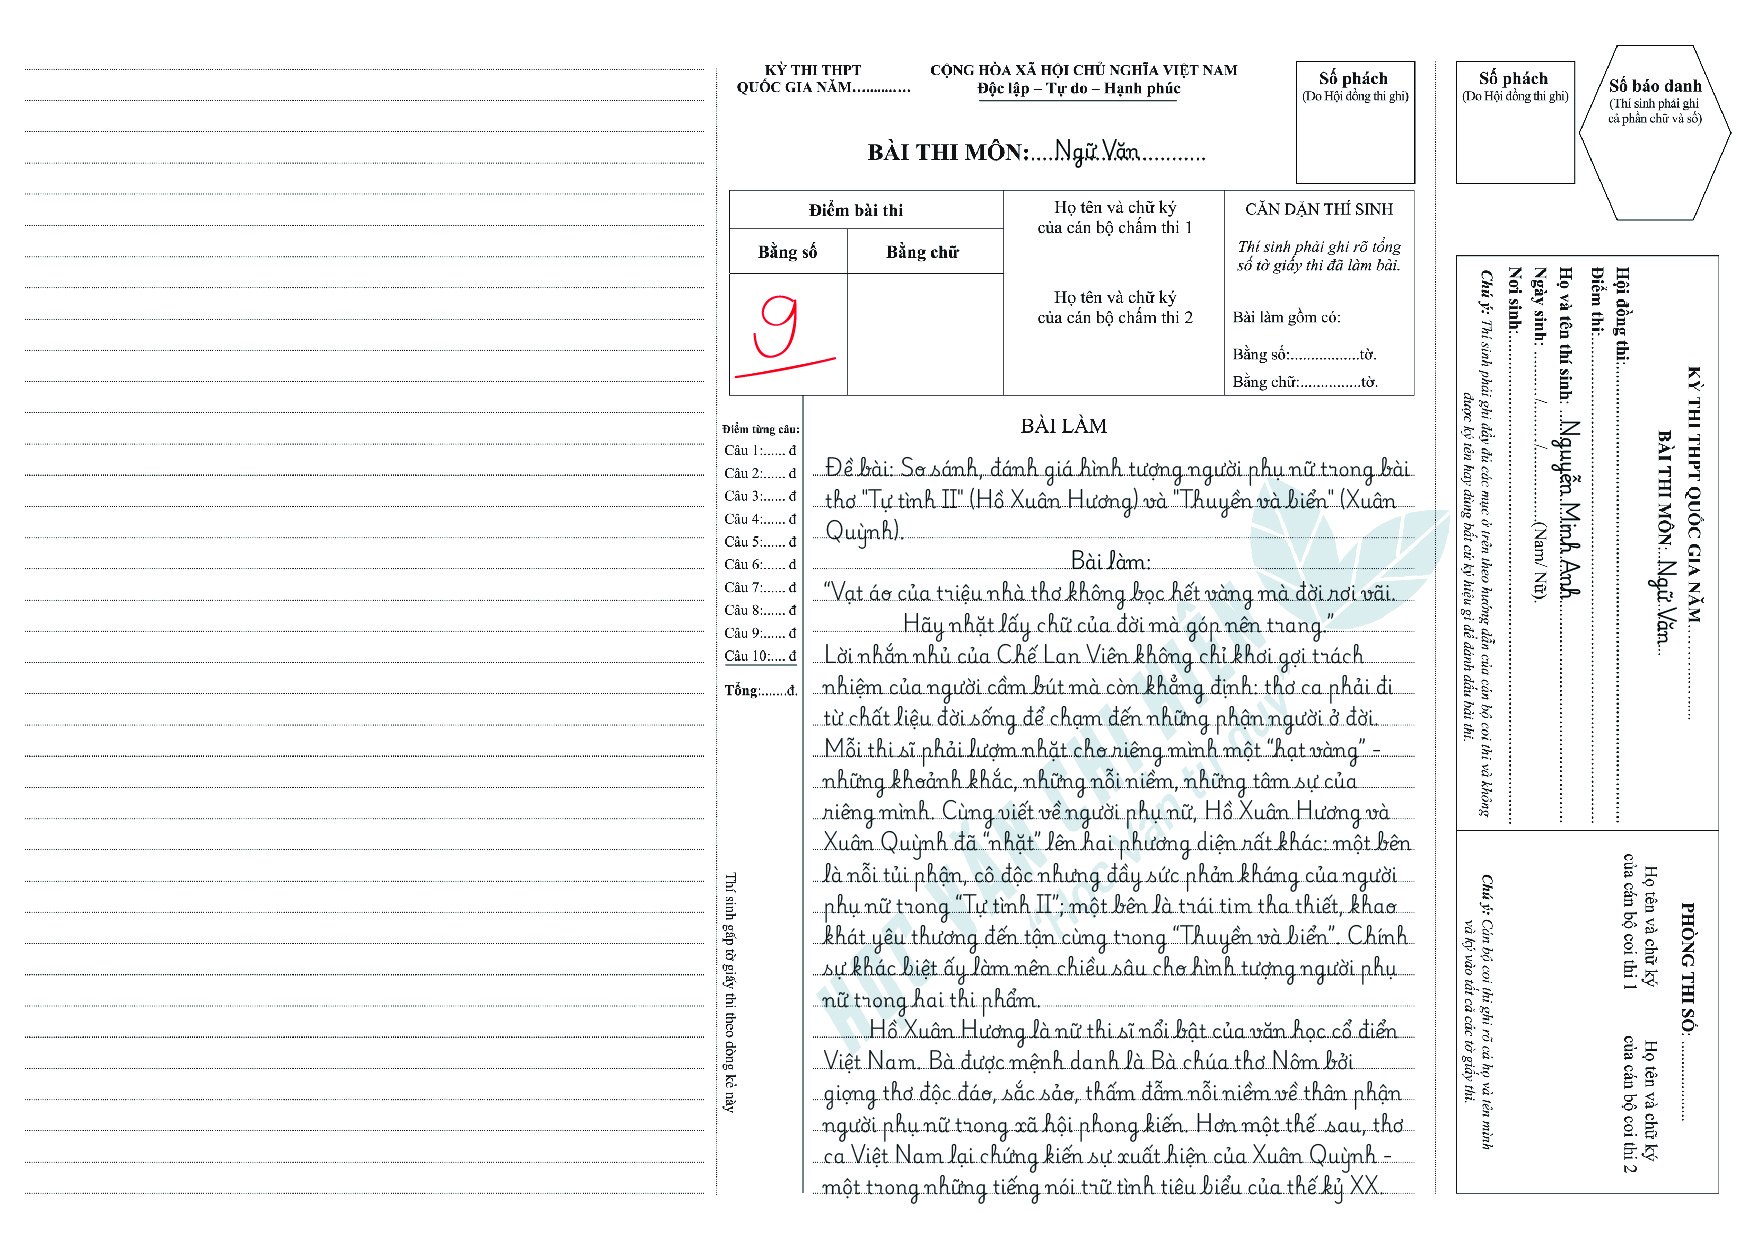 KỲ THI THPT
QUỐC GIA NĂM..............
CỘNG HÒA XÃ HỘI CHỦ NGHĨA VIỆT NAM
Độc lập – Tự do – Hạnh phúc
BÀI THI MÔN:....Ngữ Văn..........
Số phách
(Do Hội đồng thi ghi)
Điểm bài thi
Bằng số
Bằng chữ
9
Họ tên và chữ ký
của cán bộ chấm thi 1
Họ tên và chữ ký
của cán bộ chấm thi 2
CĂN DẶN THÍ SINH
Thí sinh phải ghi rõ tổng
số tờ giấy thi đã làm bài.
Bài làm gồm có:
Bằng số:.................tờ.
Bằng chữ:...............tờ.
Điểm từng câu:
Câu 1:...... đ
Câu 2:...... đ
Câu 3:...... đ
Câu 4:...... đ
Câu 5:...... đ
Câu 6:...... đ
Câu 7:...... đ
Câu 8:...... đ
Câu 9:...... đ
Câu 10:.... đ
Tổng:.......đ.
Thí sinh gấp tờ giấy thi theo dòng kẻ này
BÀI LÀM
Đề bài: So sánh, đánh giá hình tượng người phụ nữ trong bài
thơ "Tự tình II" (Hồ Xuân Hương) và "Thuyền và biển" (Xuân
Quỳnh).
Bài làm:
“Vạt áo của triệu nhà thơ không bọc hết vàng mà đời rơi vãi.
Hãy nhặt lấy chữ của đời mà góp nên trang.”
Lời nhắn nhủ của Chế Lan Viên không chỉ khơi gợi trách
nhiệm của người cầm bút mà còn khẳng định: thơ ca phải đi
từ chất liệu đời sống để chạm đến những phận người ở đời.
Mỗi thi sĩ phải lượm nhặt cho riêng mình một “hạt vàng” -
những khoảnh khắc, những nỗi niềm, những tâm sự của
riêng mình. Cùng viết về người phụ nữ, Hồ Xuân Hương và
Xuân Quỳnh đã “nhặt” lên hai phương diện rất khác: một bên
là nỗi tủi phận, cô độc nhưng đầy sức phản kháng của người
phụ nữ trong “Tự tình II”; một bên là trái tim tha thiết, khao
khát yêu thương đến tận cùng trong “Thuyền và biển”. Chính
sự khác biệt ấy làm nên chiều sâu cho hình tượng người phụ
nữ trong hai thi phẩm.
Hồ Xuân Hương là nữ thi sĩ nổi bật của văn học cổ điển
Việt Nam. Bà được mệnh danh là Bà chúa thơ Nôm bởi
giọng thơ độc đáo, sắc sảo, thấm đẫm nỗi niềm về thân phận
người phụ nữ trong xã hội phong kiến. Hơn một thế sau, thơ
ca Việt Nam lại chứng kiến sự xuất hiện của Xuân Quỳnh -
một trong những tiếng nói trữ tình tiêu biểu của thế kỷ XX.
HỌC VĂN CHỊ HIÊN
Học văn tư duy
Số phách
(Do Hội đồng thi ghi)
Số báo danh
(Thí sinh phải ghi
cả phần chữ và số)
KỲ THI THPT QUỐC GIA NĂM..................
BÀI THI MÔN:..Ngữ Văn..
Hội đồng thi:..........
Điểm thi:..........
Họ và tên thí sinh: ..Nguyễn Minh Anh..........
Ngày sinh: ........./......../............(Nam/ Nữ).
Nơi sinh:..........
Chú ý: Thí sinh phải ghi đầy đủ các mục ở trên theo hướng dẫn của cán bộ coi thi và không
được ký tên hay dùng bất cứ ký hiệu gì để đánh dấu bài thi.
PHÒNG THI SỐ: ................
Họ tên và chữ ký
của cán bộ coi thi 1
Họ tên và chữ ký
của cán bộ coi thi 2
Chú ý: Cán bộ coi thi ghi rõ cả họ và tên mình
và ký vào tất cả các tờ giấy thi.